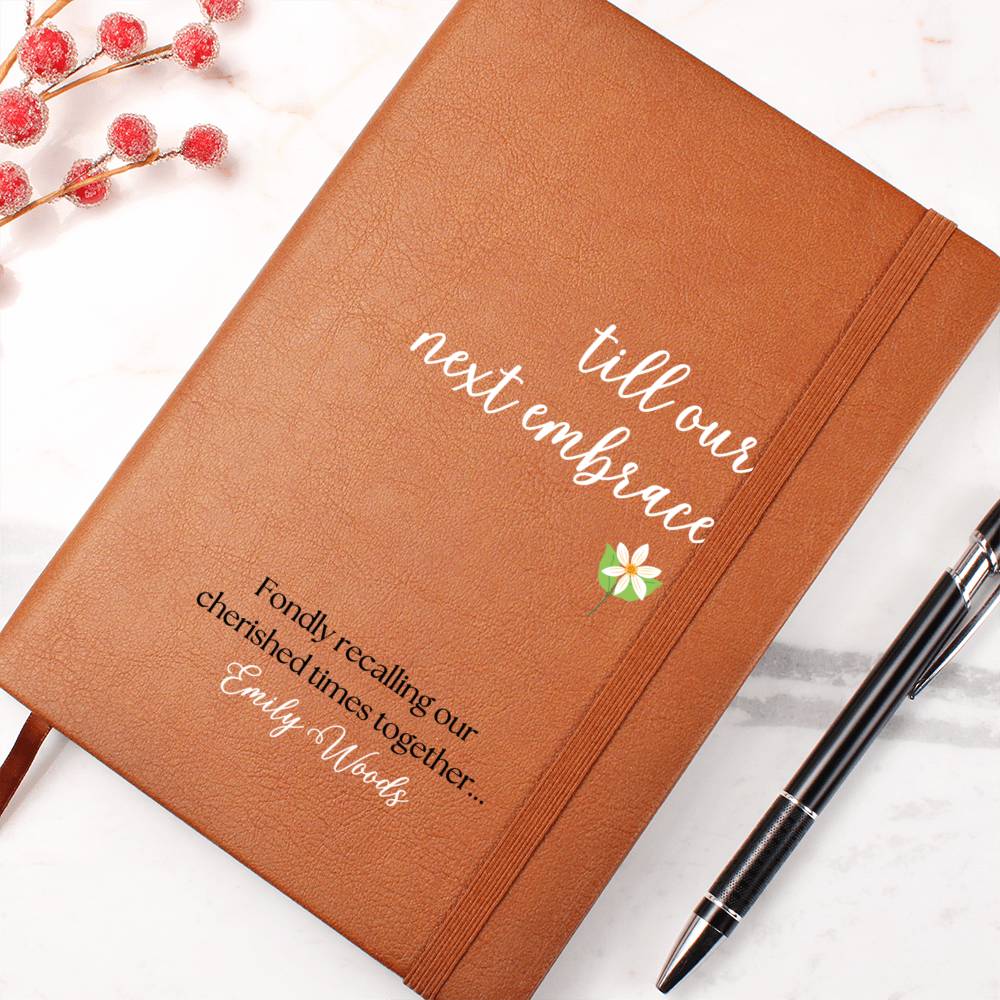 till our
next embrace
Fondly recalling our
cherished times together...
Emily Woods